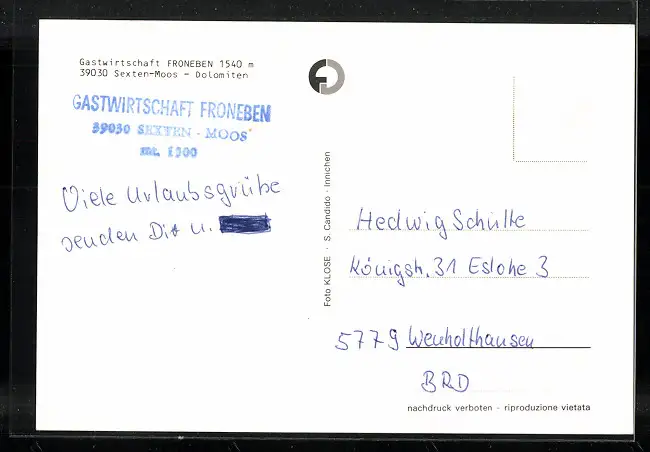 Gastwirtschaft FRONEBEN 1540 m
39030 Sexten-Moos - Dolomiten
GASTWIRTSCHAFT FRONEBEN
39030 SEXTEN - MOOS
mt. 1500
Viele Urlaubsgrüße
senden Dir u.
Foto KLOSE · S. Candido · Innichen
Hedwig Schulte
Königstr. 31 Eslohe 3
5779 Wenholthausen
BRD
nachdruck verboten - riproduzione vietata